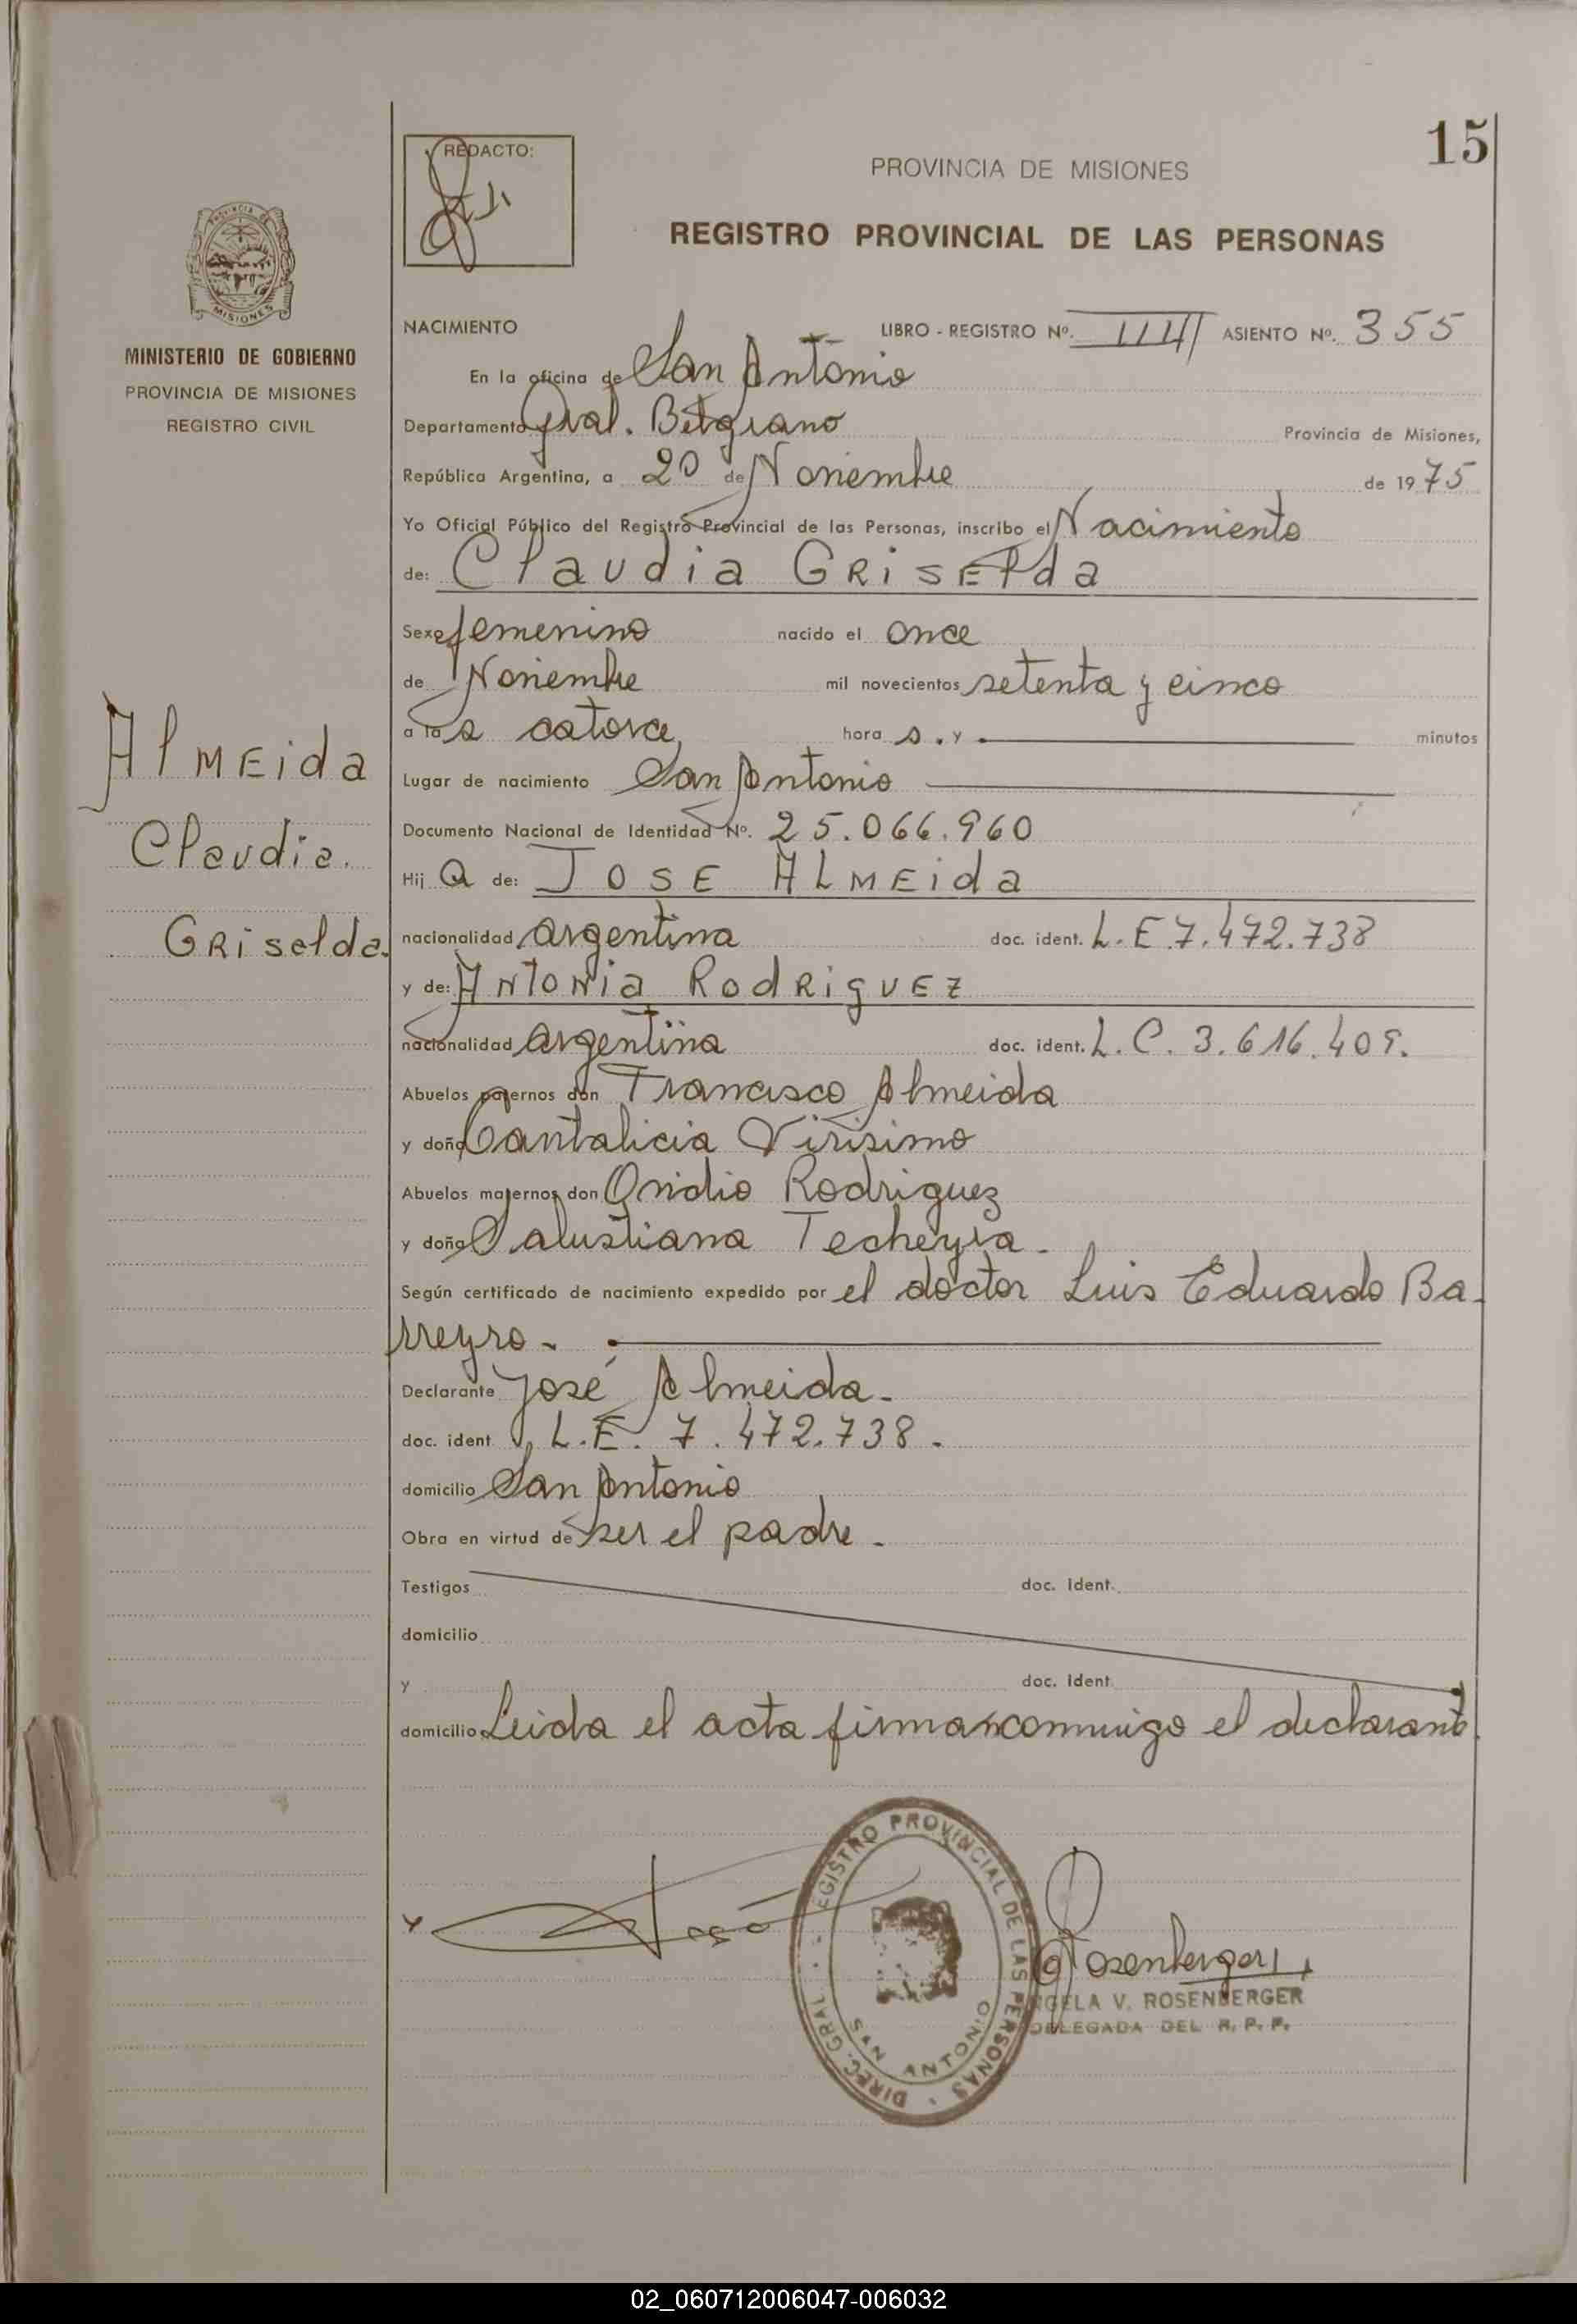 15
REDACTO:
PROVINCIA DE MISIONES
REGISTRO PROVINCIAL DE LAS PERSONAS
PROVINCIA DE
MISIONES
MINISTERIO DE GOBIERNO
PROVINCIA DE MISIONES
REGISTRO CIVIL
NACIMIENTO LIBRO - REGISTRO Nº. IIII ASIENTO Nº. 355
En la oficina de San Antonio
Departamento Gral. Belgrano Provincia de Misiones,
República Argentina, a 20 de Noviembre de 1975
Yo Oficial Público del Registro Provincial de las Personas, inscribo el Nacimiento
de: Claudia Griselda
Sexo femenino nacido el once
de Noviembre mil novecientos setenta y cinco
a las catorce hora s. y minutos
Lugar de nacimiento San Antonio
Documento Nacional de Identidad Nº. 25.066.960
Hij a de: JOSE ALMEida
nacionalidad argentina doc. ident. L.E 7.472.738
y de: Antonia Rodriguez
nacionalidad argentina doc. ident. L.C. 3.616.409.
Abuelos paternos don Francisco Almeida
y doña Cantalicia Virisimo
Abuelos maternos don Ovidio Rodriguez
y doña Salustiana Techeyra.
Según certificado de nacimiento expedido por el doctor Luis Eduardo Ba-
rreyro-
Declarante José Almeida-
doc. ident L.E. 7.472.738.
domicilio San Antonio
Obra en virtud de ser el padre-
Testigos doc. ident.
domicilio
y doc. ident.
domicilio Leida el acta firma conmigo el declarante.
Almeida
Claudia.
Griselda.
José
DIREC. GRAL. REGISTRO PROVINCIAL DE LAS PERSONAS
SAN ANTONIO
Rosenberger
ANGELA V. ROSENBERGER
DELEGADA DEL R. P. P.
02_060712006047-006032